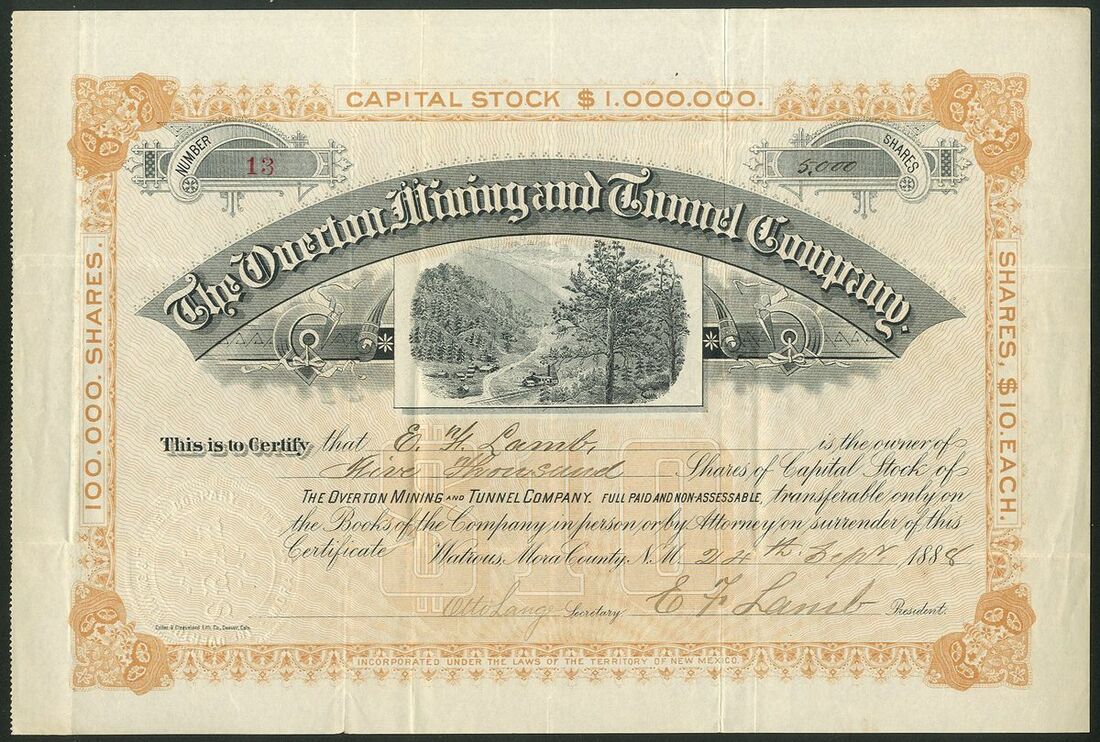 CAPITAL STOCK $1.000.000.
NUMBER
13
SHARES
5,000
The Overton Mining and Tunnel Company.
100.000. SHARES.
SHARES, $10. EACH.
This is to Certify that E. F. Lamb, is the owner of
Five Thousand Shares of Capital Stock of
THE OVERTON MINING AND TUNNEL COMPANY. FULL PAID AND NON-ASSESSABLE, transferable only on
the Books of the Company in person or by Attorney on surrender of this
Certificate Watrous, Mora County, N.M. 24th. Sept 1888
Otto Lange Secretary. E F Lamb President.
INCORPORATED UNDER THE LAWS OF THE TERRITORY OF NEW MEXICO.